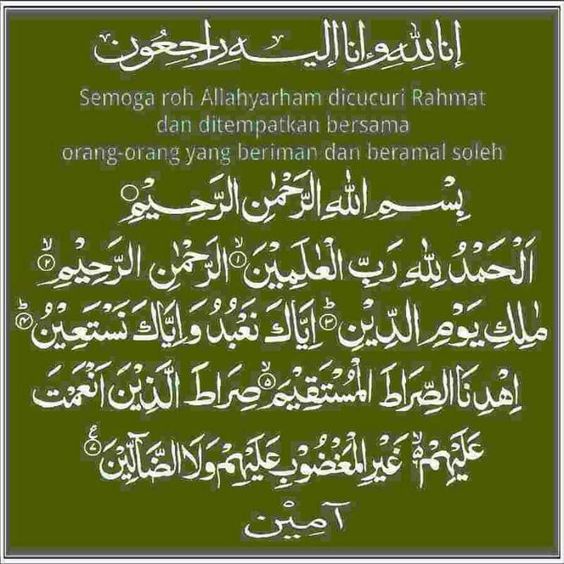 إنا لله وإنا إليه راجعون
Semoga roh Allahyarham dicucuri Rahmat
dan ditempatkan bersama
orang-orang yang beriman dan beramal soleh
بِسْمِ اللهِ الرَّحْمٰنِ الرَّحِيْمِ
اَلْحَمْدُ لِلهِ رَبِّ الْعٰلَمِيْنَ ۙ۱ الرَّحْمٰنِ الرَّحِيْمِ ۙ۲
مٰلِكِ يَوْمِ الدِّيْنِ ۳ اِيَّاكَ نَعْبُدُ وَاِيَّاكَ نَسْتَعِيْنُ ۴
اِهْدِنَا الصِّرَاطَ الْمُسْتَقِيْمَ ۙ۵ صِرَاطَ الَّذِيْنَ اَنْعَمْتَ
عَلَيْهِمْ ۶ غَيْرِ الْمَغْضُوْبِ عَلَيْهِمْ وَلَا الضَّآلِّيْنَ ۷
آمِيْن